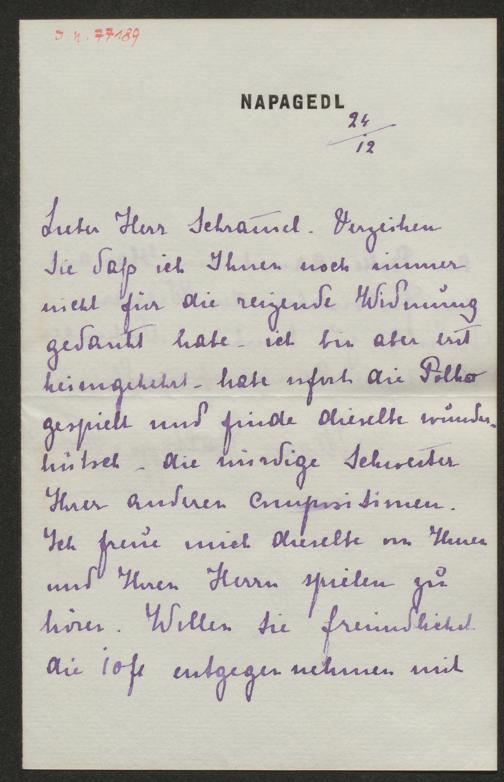 J. N. 77189
NAPAGEDL
24/12
Lieber Herr Schrammel. Verzeihen
Sie daß ich Ihnen noch immer
nicht für die reizende Widmung
gedankt habe - ich bin aber erst
heimgekehrt - habe sofort die Polka
gespielt und finde dieselbe wunder-
hübsch - die würdige Schwester
Ihrer anderen Compositionen.
Ich freue mich dieselbe von Ihnen
und Ihren Herrn spielen zu
hören. Wollen Sie freundlichst
die 10 fl entgegen nehmen mit